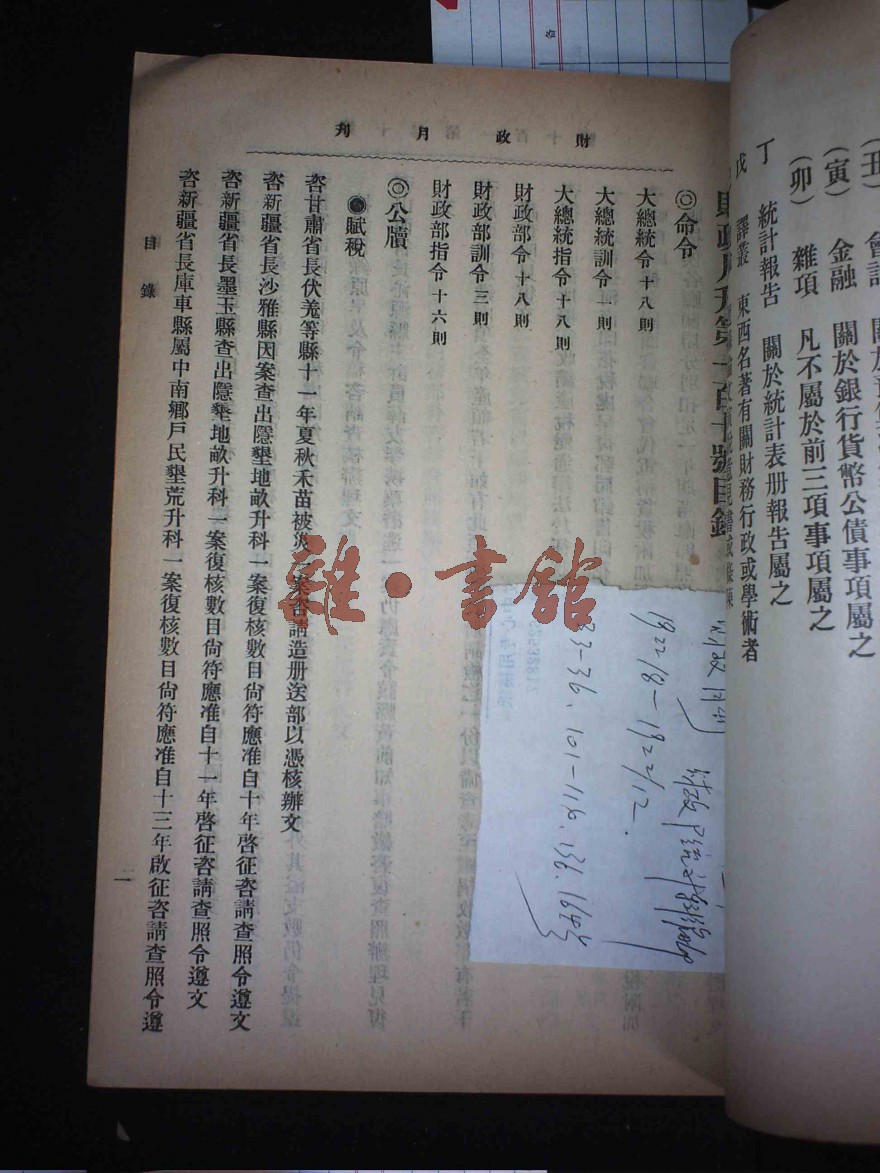 財政月刊
財政月刊第一百十號目錄
◎命令
大總統令十八則
大總統訓令一則
大總統指令十八則
財政部令十八則
財政部訓令三則
財政部指令十六則
◎公牘
●賦稅
咨甘肅省長伏羌等縣十一年夏秋禾苗被災一案咨請造册送部以憑核辦文
咨新疆省長沙雅縣因案查出隱墾地畝升科一案復核數目尙符應准自十年啓征咨請查照令遵文
咨新疆省長墨玉縣查出隱墾地畝升科一案復核數目尙符應准自十一年啓征咨請查照令遵文
咨新疆省長庫車縣屬中南鄉戶民墾荒升科一案復核數目尙符應准自十三年啟征咨請查照令遵
目錄
一
(寅) 金融 關於銀行貨幣公債事項屬之
(卯) 雜項 凡不屬於前三項事項屬之
丁 統計報告 關於統計表册報告屬之
戊 譯叢 東西名著有關財務行政或學術者
財政月刊
1922/8-1922/12.
33-36、101-116、136、164号
雜·書館